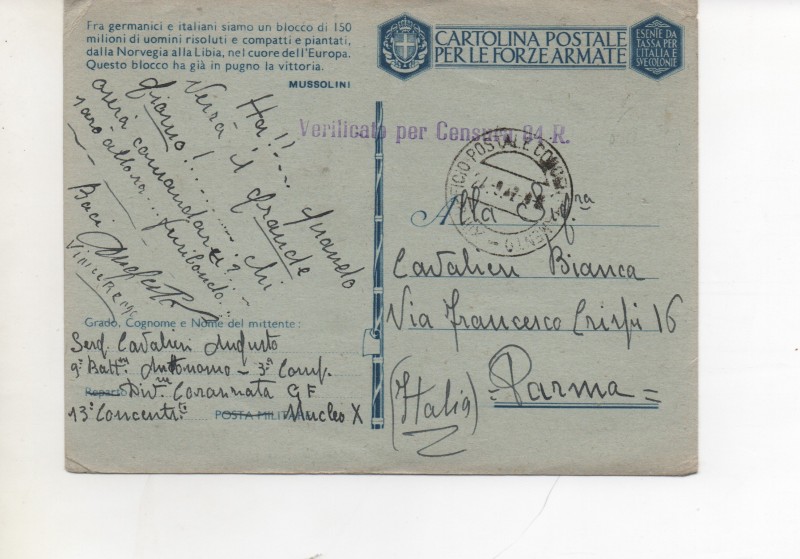 Fra germanici e italiani siamo un blocco di 150
milioni di uomini risoluti e compatti e piantati,
dalla Norvegia alla Libia, nel cuore dell'Europa.
Questo blocco ha già in pugno la vittoria.
MUSSOLINI
CARTOLINA POSTALE
PER LE FORZE ARMATE
ESENTE DA
TASSA PER
L'ITALIA E
SUE COLONIE
Verificato per Censura 94 R.
UFFICIO POSTALE
Ha!!.... Quando
Verrà il Grande
giorno!....... chi
avrà comandare?...
sarò allora... furibondo...
Baci Augusto
VINCEREMO
Alla Sig.ra
Cavalieri Bianca
Via Francesco Crispi 16
=Parma=
(Italia)
Grado, Cognome e Nome del mittente:
Serg Cavalieri Augusto
9° Batt.ne Autonomo - 3ª Comp.
Reparto Div.ne Corazzata G F
13° Concent.to POSTA MILITARE Nucleo X